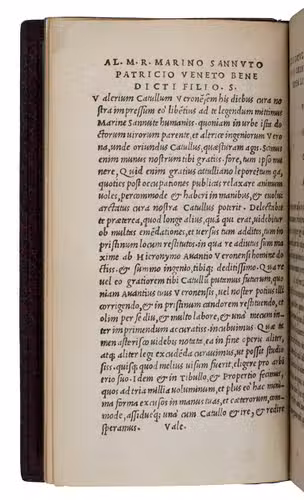 AL. M. R. MARINO SANNVTO
PATRICIO VENETO BENE
DICTI FILIO. S.
Valerium Catullum Veronẽsem his diebus cura no
stra impressum eo libẽtius ad te legendum mittimus
Marine Sannute humaniss. quoniam in urbe ista do
ctorum uirorum parente, et alterice ingeniorum Verona
, unde oriundus Catullus, quæsturam agis. Scimus
enim munus nostrum tibi gratiss. fore, tum ipso mu
nere, Quid enim gratius catulliano lepori tum quia,
quoties post occupationes publicas relaxare animum
uoles, percommode & haberi in manibus, & euolui
arctatus cura nostra Catullus poterit. Delectabit
te præterea, quod longe alius, quã qui erat, uidebitur
ob multas emẽdationes, et uersus tum additos, tum in
pristinum locum restitutos. in qua re adiutus sum ma
xime ab Hieronymo Auantio Veronensi homine do
ctiss. & summo ingenio, tibiq; deditissimo. Quare
uel eo gratiorem tibi Catullũ putemus futurum, quo
niam Auantius unus Veronensis, uel noster potius illi
corrigendo, & in pristinum candorem restituendo, et
olim per se diu, & multo labore, & una mecum in
ter imprimendum accuratiss. incubuimus. Quæ ta
men asterisco uidebis notata, ea in fine operis aliter,
atq; aliter legi excudẽda curauimus, ut possit studio
siss. quisq; quod melius uisum fuerit, eligere pro arbi
trio suo. Idem & in Tibullo, & Propertio fecimus,
quos ad tria millia uoluminum, et plus eo hac mini
ma forma excusos in manus tuas, et cæterorum, com
mode, assidueq; una cum Catullo & ire, & redire
speramus. Vale.